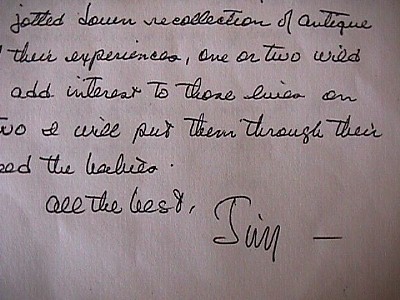 jotted down recollection of antique
their experiences, one or two wild
add interest to those lives on
two I will put them through their
the babies.
all the best,
Jim —